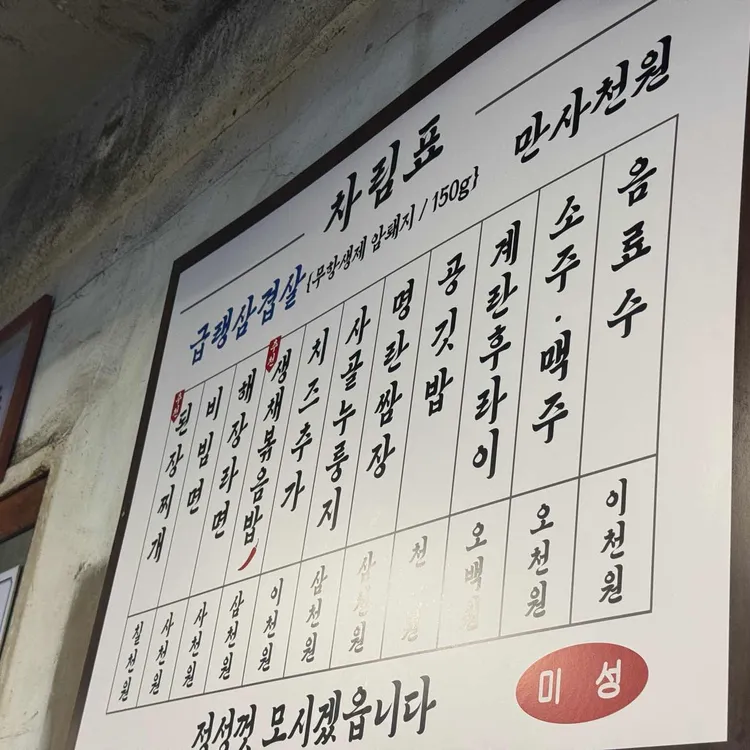 차림표
급랭삼겹살 {무항생제 암퇘지 / 150g} 만사천원
추천 된장찌개 칠천원
비빔면 사천원
해장라면 사천원
추천 생채볶음밥 삼천원
치즈추가 이천원
사골누룽지 삼천원
명란쌈장 삼천원
공깃밥 천원
계란후라이 오백원
소주·맥주 오천원
음료수 이천원
정성껏 모시겠읍니다
미성